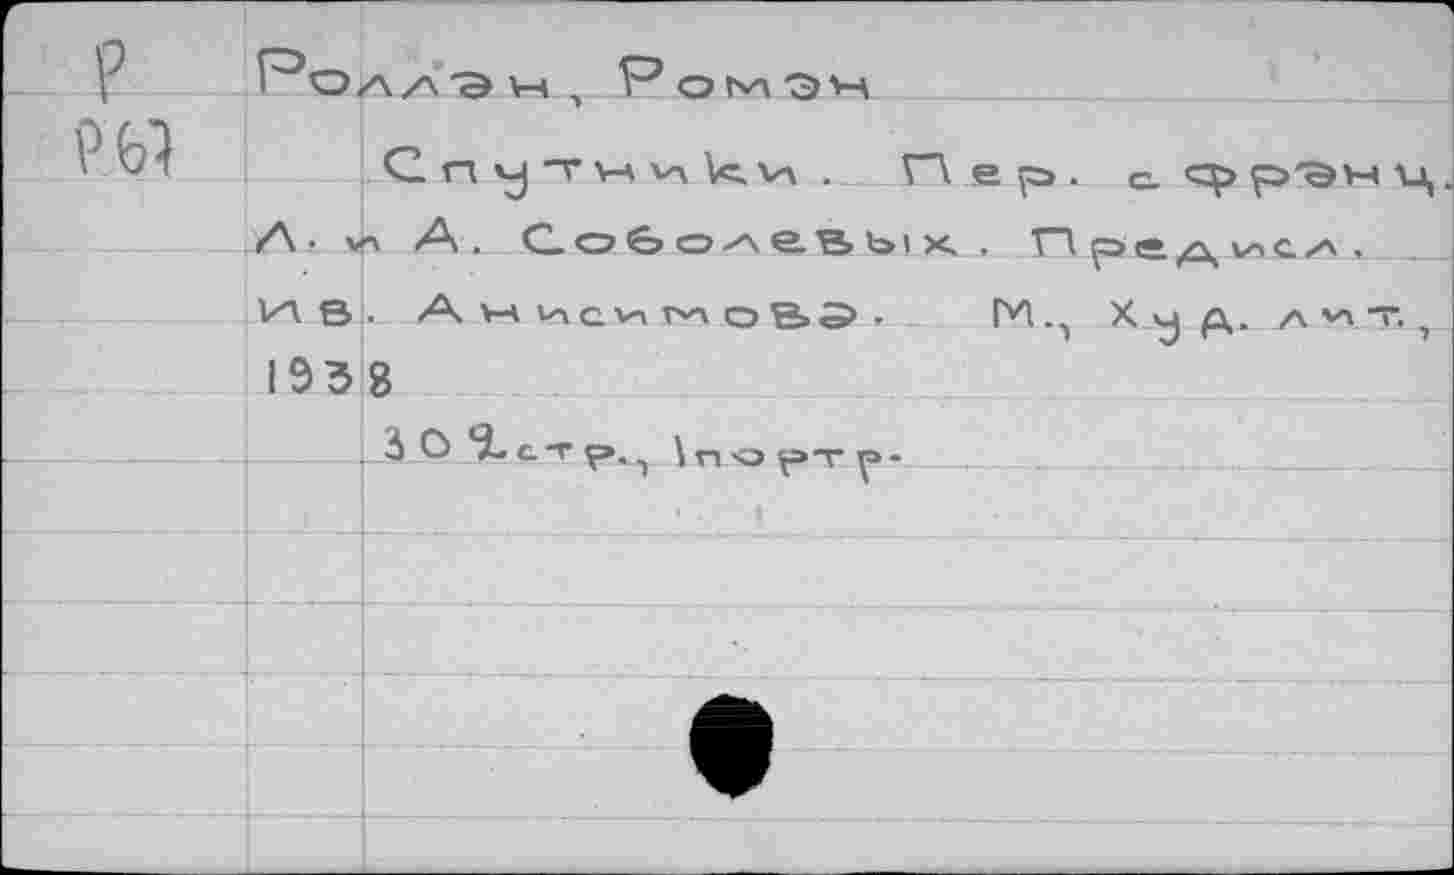 Р Роллан, Роман
Р67
Спутники. Пер. с франц.
Л. и А. Соболевых. Предисл.
ив. Анисимова. М., Худ. лит.,
1938
302стр., 1портр.